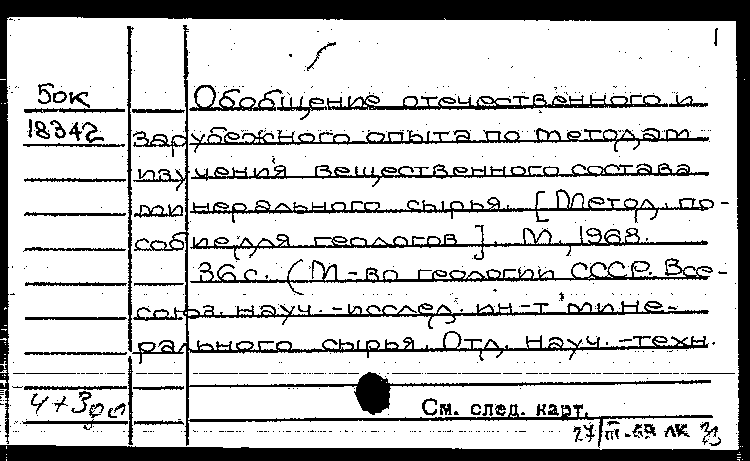 1
Бок Обобщение отечественного и
18342 зарубежного опыта по методам
изучения вещественного состава
минерального сырья. [Метод. по-
собие для геологов]. М., 1968.
36 с. (М-во геологии СССР. Все-
союз. науч.-исслед. ин-т мине-
рального сырья. Отд. науч.-техн.
4+3
См. след. карт.
27/III-69 ЛК